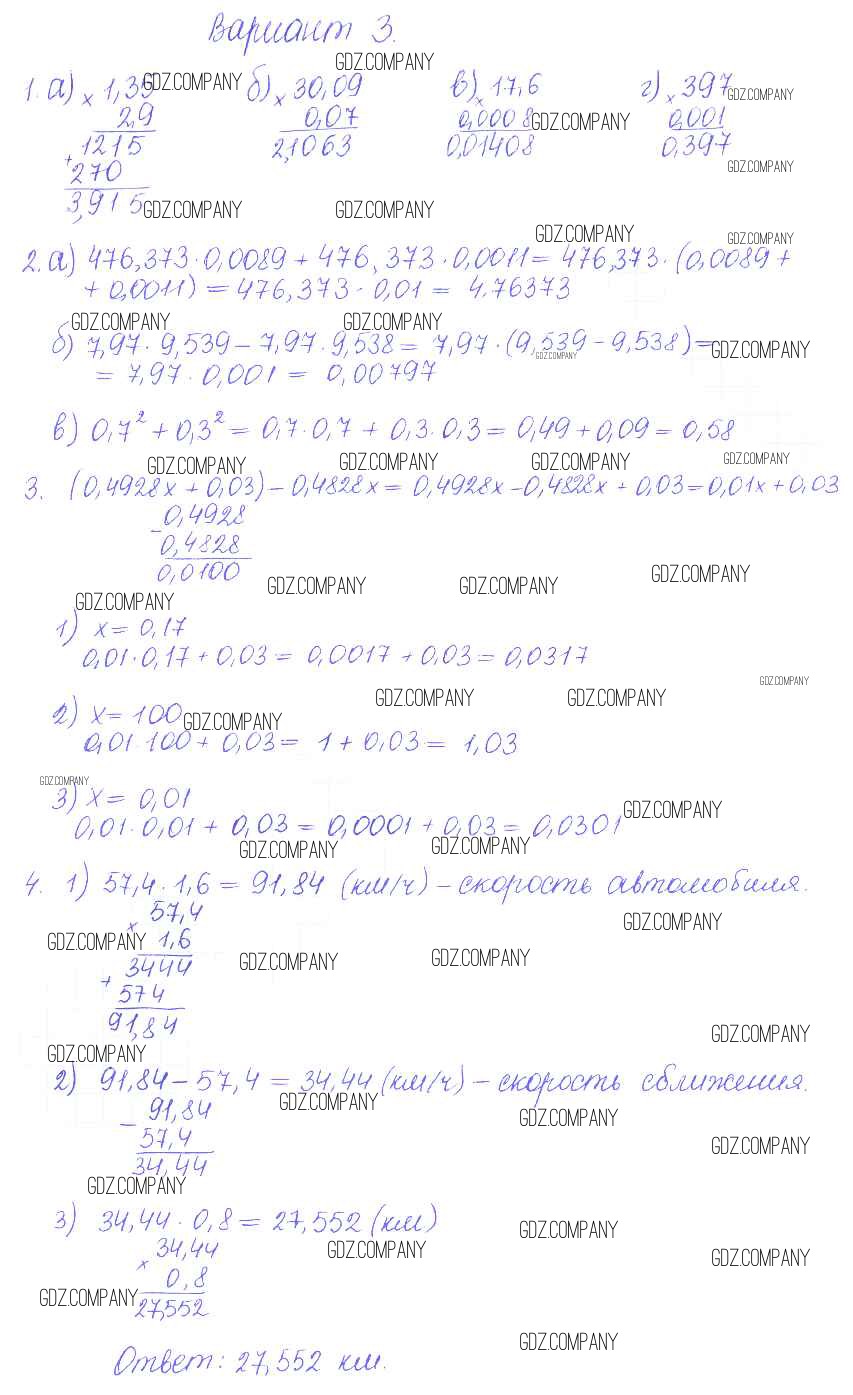 Вариант 3.
GDZ.COMPANY
1. а) × 1,35 GDZ.COMPANY б) × 30,09 в) × 17,6 г) × 397 GDZ.COMPANY
2,9 0,07 0,0008 GDZ.COMPANY 0,001
1215 2,1063 0,01408 0,397
+ 270 GDZ.COMPANY
3,915 GDZ.COMPANY GDZ.COMPANY
GDZ.COMPANY GDZ.COMPANY
2. а) 476,373 · 0,0089 + 476,373 · 0,0011 = 476,373 · (0,0089 +
+ 0,0011) = 476,373 · 0,01 = 4.76373
GDZ.COMPANY GDZ.COMPANY
б) 7,97 · 9,539 – 7,97 · 9,538 = 7,97 · (9,539 – 9,538) = GDZ.COMPANY
GDZ.COMPANY
= 7,97 · 0,001 = 0,00797
в) 0,7² + 0,3² = 0,7 · 0,7 + 0,3 · 0,3 = 0,49 + 0,09 = 0,58
GDZ.COMPANY GDZ.COMPANY GDZ.COMPANY GDZ.COMPANY
3. (0,4928x + 0,03) – 0,4828x = 0,4928x – 0,4828x + 0,03 = 0,01x + 0,03
0,4928
– 0,4828
0,0100
GDZ.COMPANY GDZ.COMPANY GDZ.COMPANY
GDZ.COMPANY
1) x = 0,17
0,01 · 0,17 + 0,03 = 0,0017 + 0,03 = 0,0317
GDZ.COMPANY
GDZ.COMPANY GDZ.COMPANY
2) x = 100 GDZ.COMPANY
0,01 · 100 + 0,03 = 1 + 0,03 = 1,03
GDZ.COMPANY
3) x = 0,01 GDZ.COMPANY
0,01 · 0,01 + 0,03 = 0,0001 + 0,03 = 0,0301
GDZ.COMPANY GDZ.COMPANY
4. 1) 57,4 · 1,6 = 91,84 (км/ч) – скорость автомобиля.
× 57,4 GDZ.COMPANY
GDZ.COMPANY 1,6
3444 GDZ.COMPANY GDZ.COMPANY
+ 574
91,84 GDZ.COMPANY
GDZ.COMPANY
2) 91,84 – 57,4 = 34,44 (км/ч) – скорость сближения.
– 91,84 GDZ.COMPANY GDZ.COMPANY
57,4 GDZ.COMPANY
34,44
GDZ.COMPANY
3) 34,44 · 0,8 = 27,552 (км) GDZ.COMPANY
× 34,44 GDZ.COMPANY GDZ.COMPANY
0,8
GDZ.COMPANY 27,552
GDZ.COMPANY
Ответ: 27,552 км.